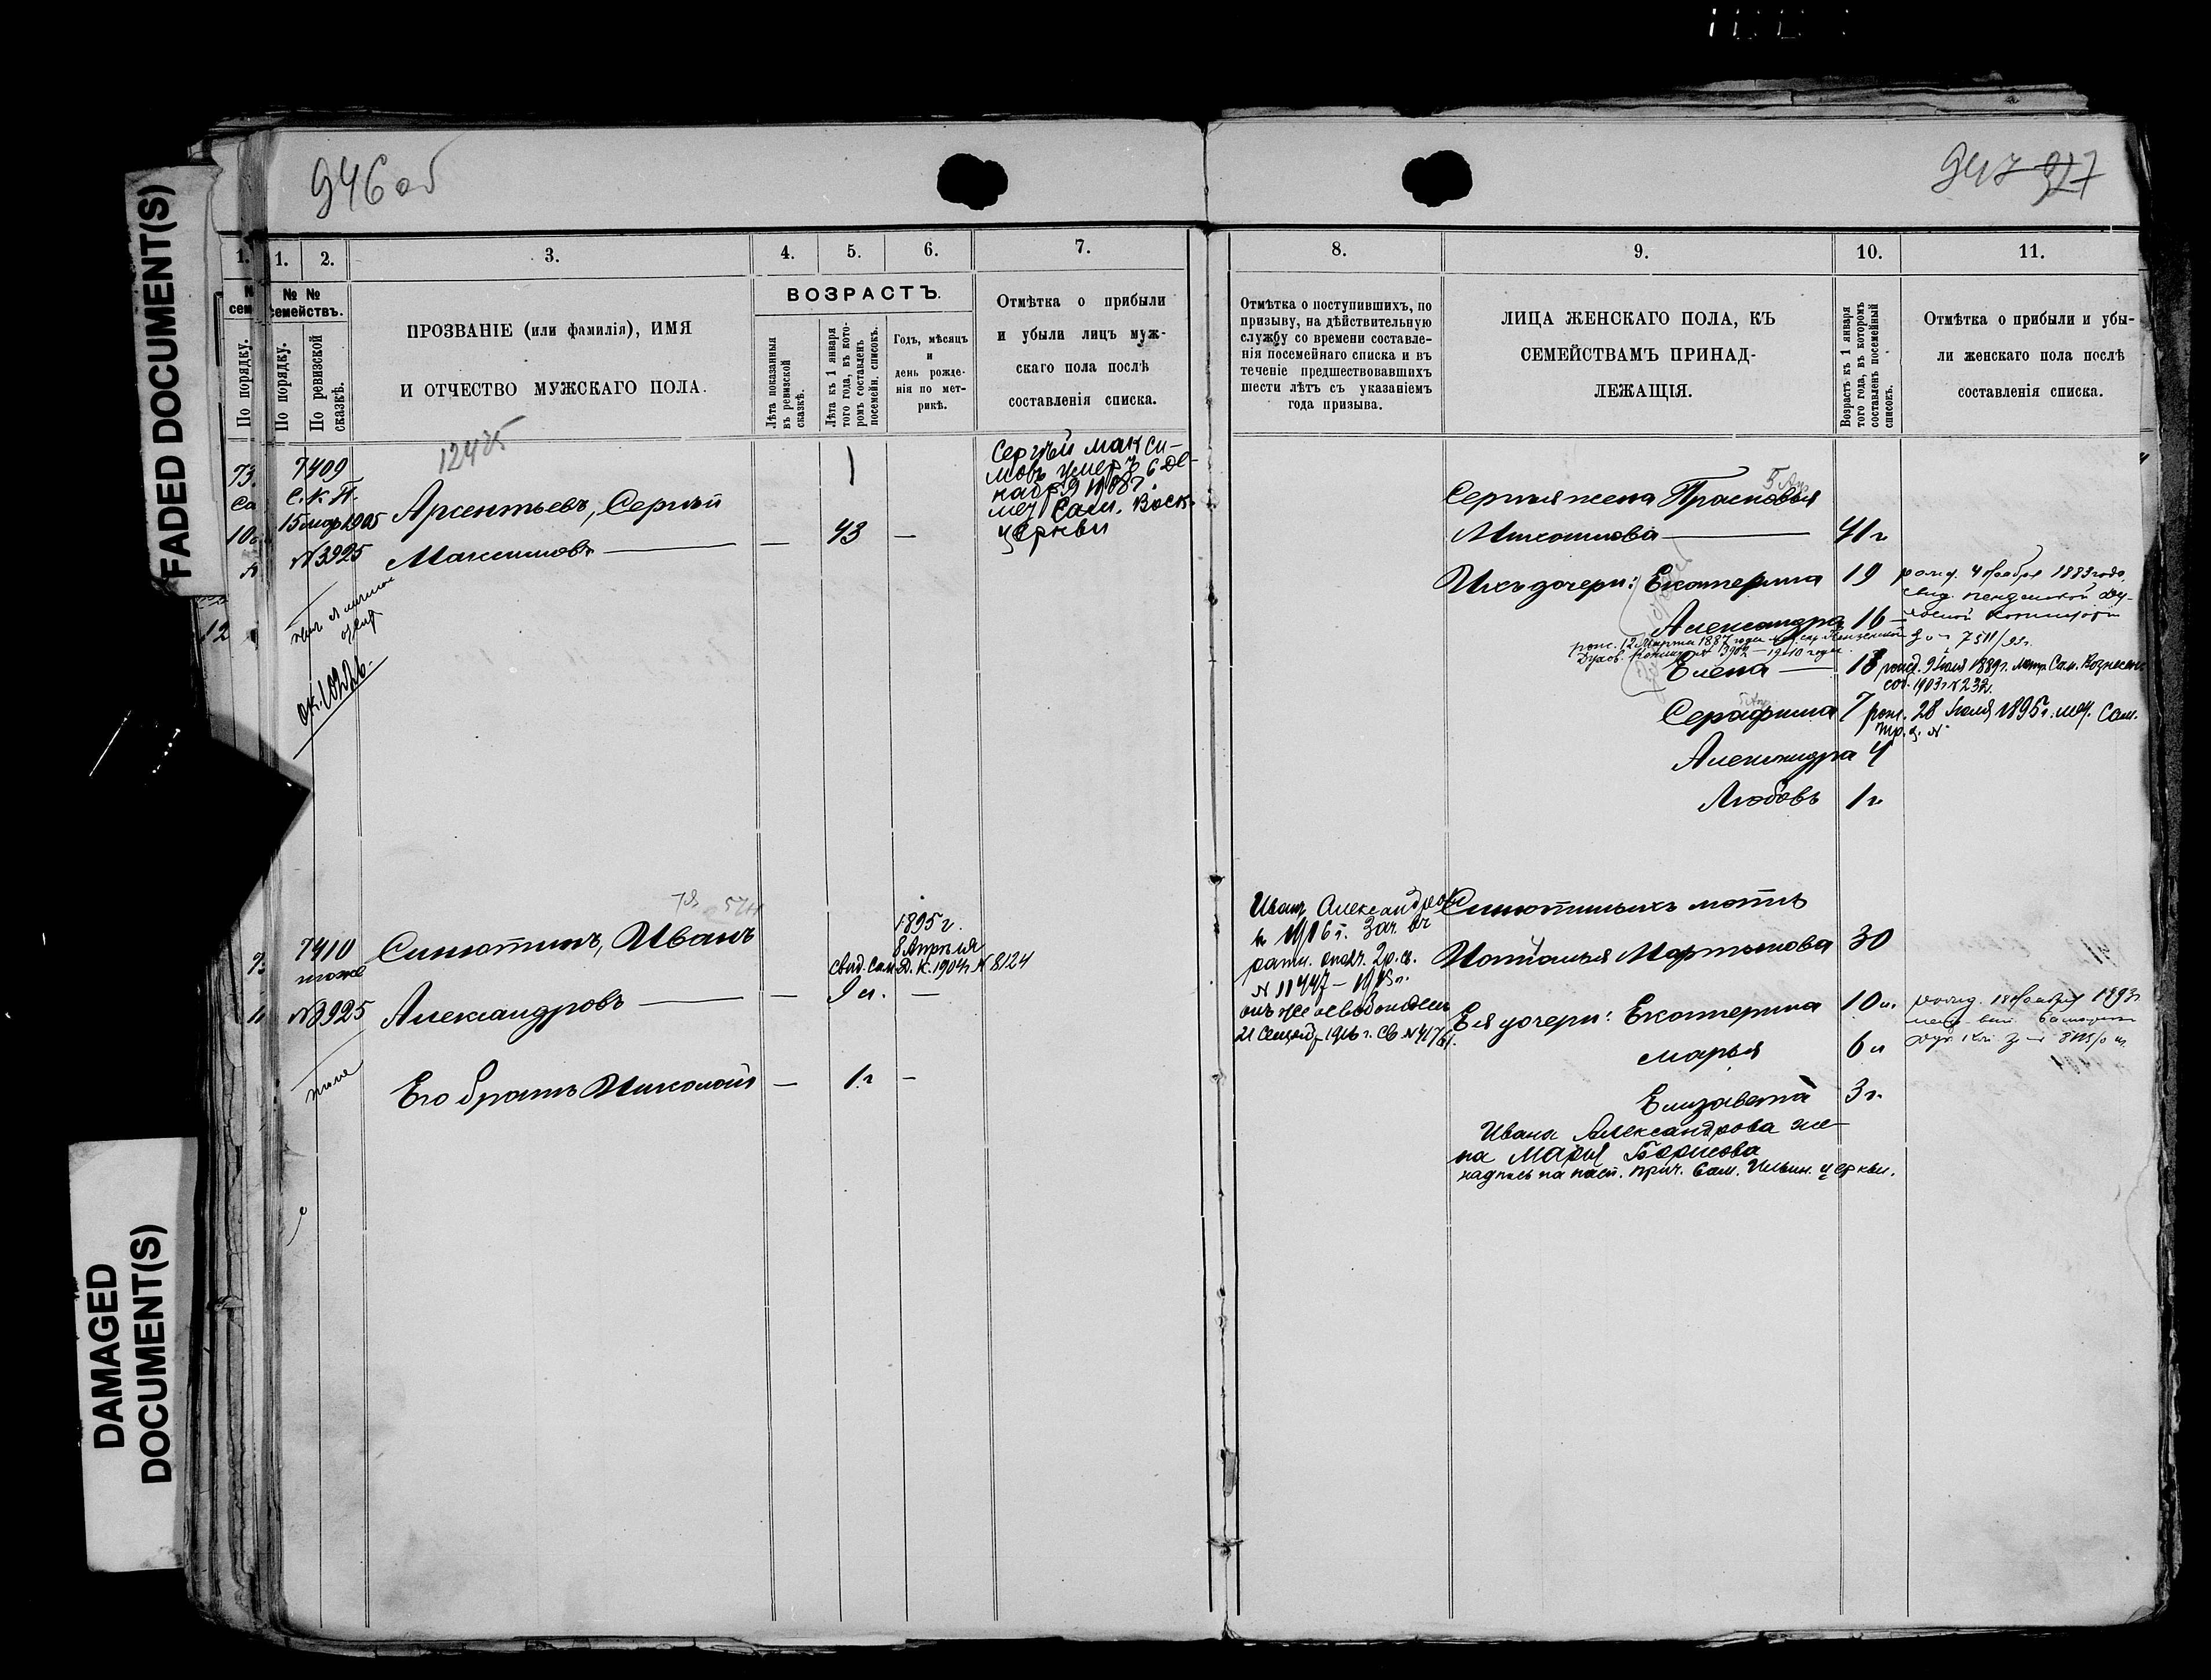 FADED DOCUMENT(S)
DAMAGED
DOCUMENT(S)
946 об
1.
2.
3.
4.
5.
6.
7.
№ №
семействъ.
По порядку.
По ревизской
сказкѣ.
ПРОЗВАНІЕ (или фамилія), ИМЯ
И ОТЧЕСТВО МУЖСКАГО ПОЛА.
ВОЗРАСТЪ.
Лѣта показанныя
въ ревизской
сказкѣ.
Лѣта къ 1 января
того года, въ кото-
ромъ составленъ
посемейн. списокъ.
Годъ, мѣсяцъ
и
день рожде-
нія по мет-
рикѣ.
Отмѣтка о прибыли
и убыли лицъ муж-
скаго пола послѣ
составленія списка.
12425
7409
С. К. П.
15 мар 1905
№ 3925
Арсентьевъ, Сергѣй
Максимовъ — — 43 —
Сергѣй Макси-
мовъ умеръ 6 де-
1908 г.
меч Сам. Воск.
церкви
ок. 10226.
7410
тоже
№ 3925
Синютинъ, Иванъ
Александровъ — — 9 л. —
1895 г.
8 Апрѣля
свид. Сам. Д. К. 1904 г. № 8124
Его братъ Николай — 1 г —
947 927
8.
9.
10.
11.
Отмѣтка о поступившихъ, по
призыву, на дѣйствительную
службу со времени составле-
нія посемейнаго списка и въ
теченіе предшествовавшихъ
шести лѣтъ съ указаніемъ
года призыва.
ЛИЦА ЖЕНСКАГО ПОЛА, КЪ
СЕМЕЙСТВАМЪ ПРИНАД-
ЛЕЖАЩІЯ.
Возрастъ къ 1 января
того года, въ которомъ
составленъ посемейный
списокъ.
Отмѣтка о прибыли и убы-
ли женскаго пола послѣ
составленія списка.
Сергѣя жена Прасковья
— 41 г
Ихъ дочери: Екатерина 19
рожд. 4 Ноября 1883 года
свид. Пензенской Ду-
ховной Консисторіи
Александра 16
рож. 12 Марта 1887 года Пензенской
Духов. Консист. № 3902 — 1910 года.
Елена — 13 рожд. 9 Іюля 1889 г. метр. Сам. Вознесен.
соб. 1903 г. № 232.
Серафима 7 рож. 28 Іюля 1895 г. меч. Сам.
Тр. ц. №
Александра 4
Любовь 1 г.
Иванъ Александровъ
въ 1916 г. зач. въ
ратн. ополч. 2 р. съ.
№ 11447 — 1915 г.
онъ же освобожденъ
21 Сентяб. 1916 г. св. № 41761.
Синютиныхъ мать
Наталья Мартынова 30
Ея дочери: Екатерина 10 л.
рожд. 18 Ноября 1893 г.
Марья 6 л
Елизавета 3 г.
Ивана Александрова же-
на Марія Борисова
надпись на пасп. прич. Сам. Ильин. церкви.